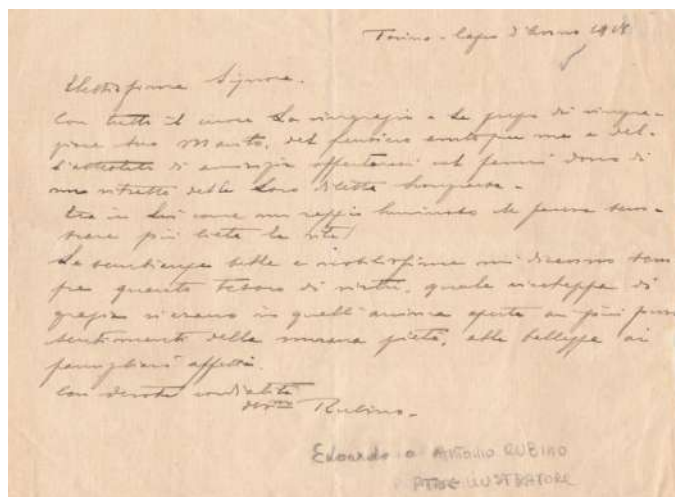 Torino - Capo d'Anno 1918
Signora.
Con tutto il cuore La ringrazio e La prego di ringra-
ziare Suo Marito, del pensiero avuto per me e del-
l'attestato di amicizia offertomi col farmi dono di
un ritratto della Loro diletta
Era in Lei come un raggio luminoso che pareva sem-
brare più lieta la vita
Le sembianze belle e nobilissime mi diranno sem
pre quanto tesoro di virtù, quale ricchezza di
grazia vi erano in quell'anima aperta ai più puri
sentimenti della umana pietà, alla bellezza ai
famigliari affetti.
Con devota cordialità
dev.mo Rubino.
Edoardo o Antonio RUBINO
ILLUSTRATORE